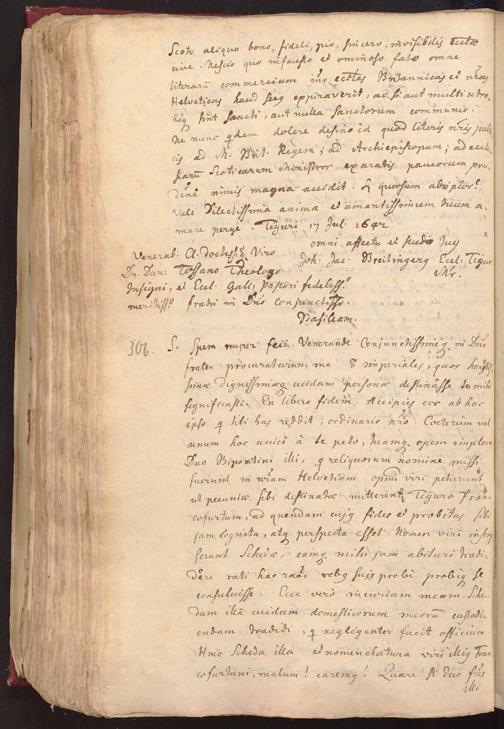 Scotis aliquo bono, fideli, pio, sincero, invisibilis Eccliæ
cive. Nescio quo infausto et ominoso fato omne
literarum commercium inter ecclas Britannicas et nras
Helveticas haud secus expiraverit, ac si aut multi utro
biq sint sancti, aut nulla sanctorum communio.
Ne nunc qdem dolere desino id quod literis nris publi
cis ad M. Brit. Regem; ad Archiepiscopum; ad eccle
siarum Scoticarum Ministros exaratis paucorum pru
dentia nimis magna accidit. Sed quorsum abripior?
Vale Dilectissima anima et amantissimum tuum a
mare perge. Tiguri 17 Jul. 1642
omni affectu et studio Tuus
Joh. Jac. Breitingerus Eccl. Tigur.
Mr.
Venerab. Cl. Doctissq Viro
Dn. Dan: Tossano Theologo
Insigni, et Eccl. Gall. Pastori fideliss.
meritiss. fratri in Dno conjunctiss.
Basileam.
306. S. Spem nuper feci, Venerande Conjunctissimeq in Dno
frater procuraturum me 8 imperiales, quos honestis
simæ dignissimæq cuidam personæ destinasse te mihi
significasti. En libero fidem. Accipies eos ab hoc
ipso q tibi has reddit, ordinario nro. Cæterum vel
unum hoc unice à te peto, tuamq opem imploro
Duo Bipontini illi, q reliquorum nomine missi
fuerunt in nram Helvetiam optimi viri petierunt
ut pecuniæ sibi destinatæ mitterentur Tiguro Fran
cofurtum, ad quendam cujus fides et probitas sibi
jam cognita, atq perspecta esset. Nomen viri inscrip
serunt Schedæ, eamq mihi jam abituri tradi
dere rati hac raoe rebus suis probe probeq se
consuluisse. Ecce vero incuriam meam. Sche
dam illam cuidam domesticorum meorum custodi
endam tradidi, q negligenter facit officium
Hinc scheda illa et nomenclatura viri illius Fran
cofurtani, malum! caremus! Quare si duo fres
illi